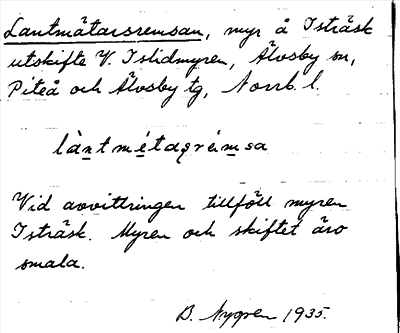 Lantmätarsremsan, myr å Isträsk
utskifte V. Islidmyren, Älvsby sn,
Piteå och Älvsby tg, Norrb. l.
làntmétaṣrémsa
Vid avvittringen tillföll myren
Isträsk. Myren och skiftet äro
smala.
B. Nygren 1935.